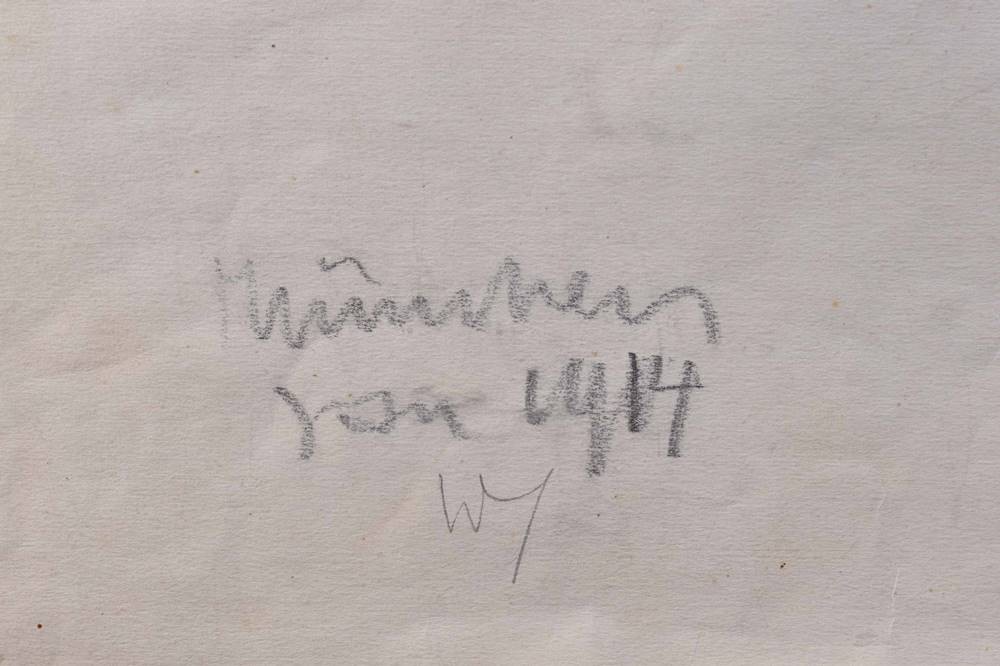 München
Jan 1914